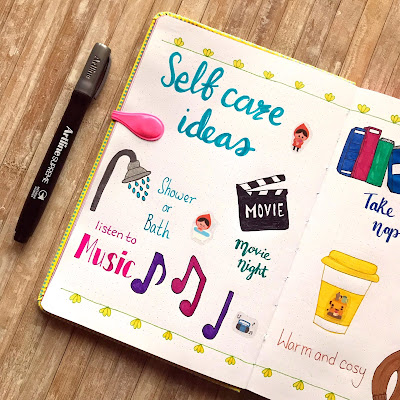 Self care
ideas
Shower
or
Bath
listen to
Music
MOVIE
Movie
Night
Take
nap
Warm and cosy
Artline SUPREME